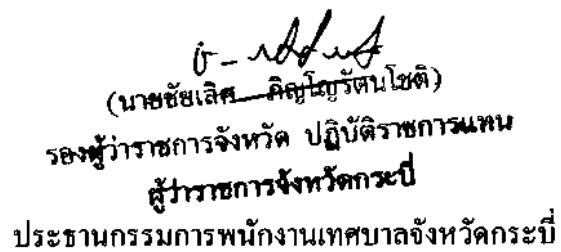 (นายชัยเลิศ ภิญโญรัตนโชติ)
รองผู้ว่าราชการจังหวัด ปฏิบัติราชการแทน
ผู้ว่าราชการจังหวัดกระบี่
ประธานกรรมการพนักงานเทศบาลจังหวัดกระบี่